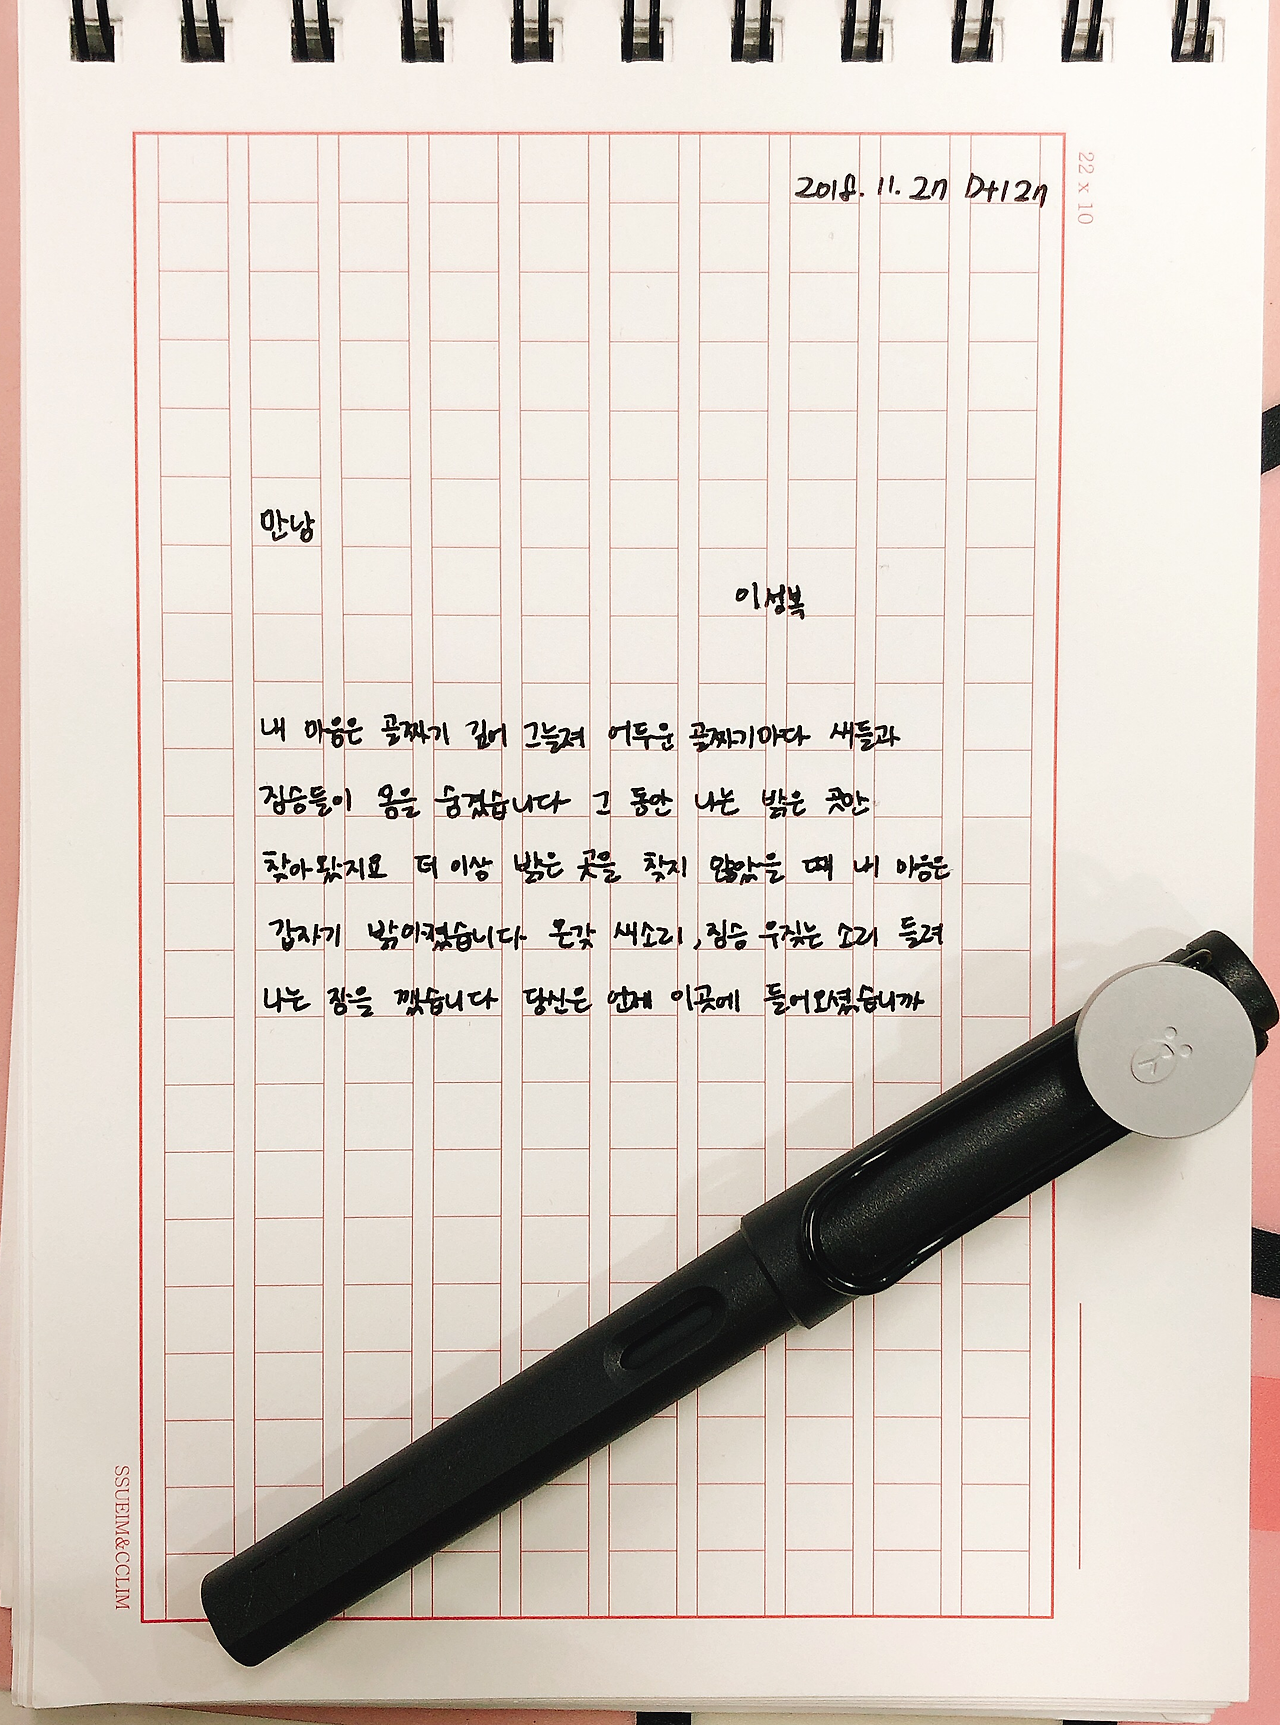 2018. 11. 27 D+127
22 x 10
만남
이성복
내 마음은 골짜기 깊어 그늘져 어두운 골짜기마다 새들과
짐승들이 몸을 숨겼습니다 그 동안 나는 밝은 곳만
찾아왔지요 더 이상 밝은 곳을 찾지 않았을 때 내 마음은
갑자기 밝아졌습니다 온갖 새소리, 짐승 우짖는 소리 들려
나는 잠을 깼습니다 당신은 언제 이곳에 들어오셨습니까
SSUEIM&CCLIM